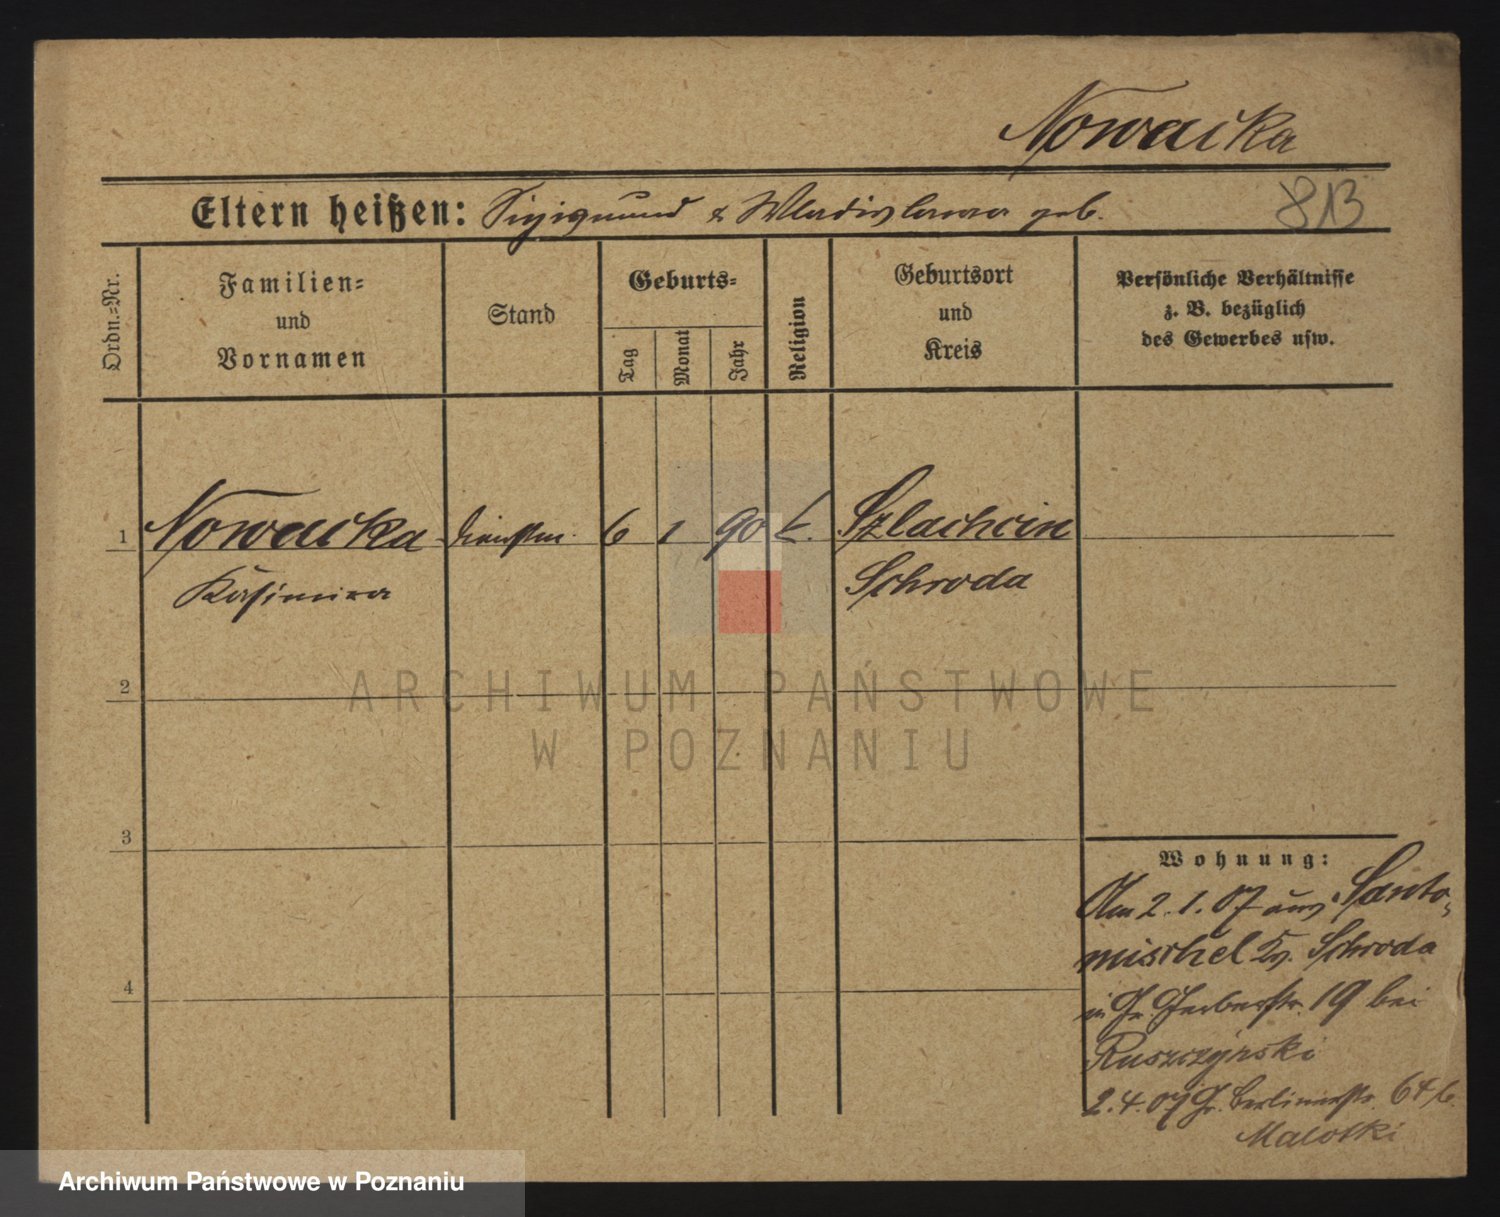 Nowacka
Eltern heißen: Sigismund & Wladislawa geb.
813
Ordn.=Nr.
Familien=
und
Vornamen
Stand
Geburts=
Tag
Monat
Jahr
Religion
Geburtsort
und
Kreis
Persönliche Verhältnisse
z. B. bezüglich
des Gewerbes usw.
1 Nowacka Dienstm. 6 1 90 k. Szlachcin
Kasimira Schroda
2
3
4
Wohnung:
Am 2.1.07 aus Santo-
mischel Kr. Schroda
in Gr. Gerberstr. 19 bei
Ruszczynski
2.4.07 Gr. Berlinerstr. 64
Malotki
ARCHIWUM PAŃSTWOWE
W POZNANIU
Archiwum Państwowe w Poznaniu